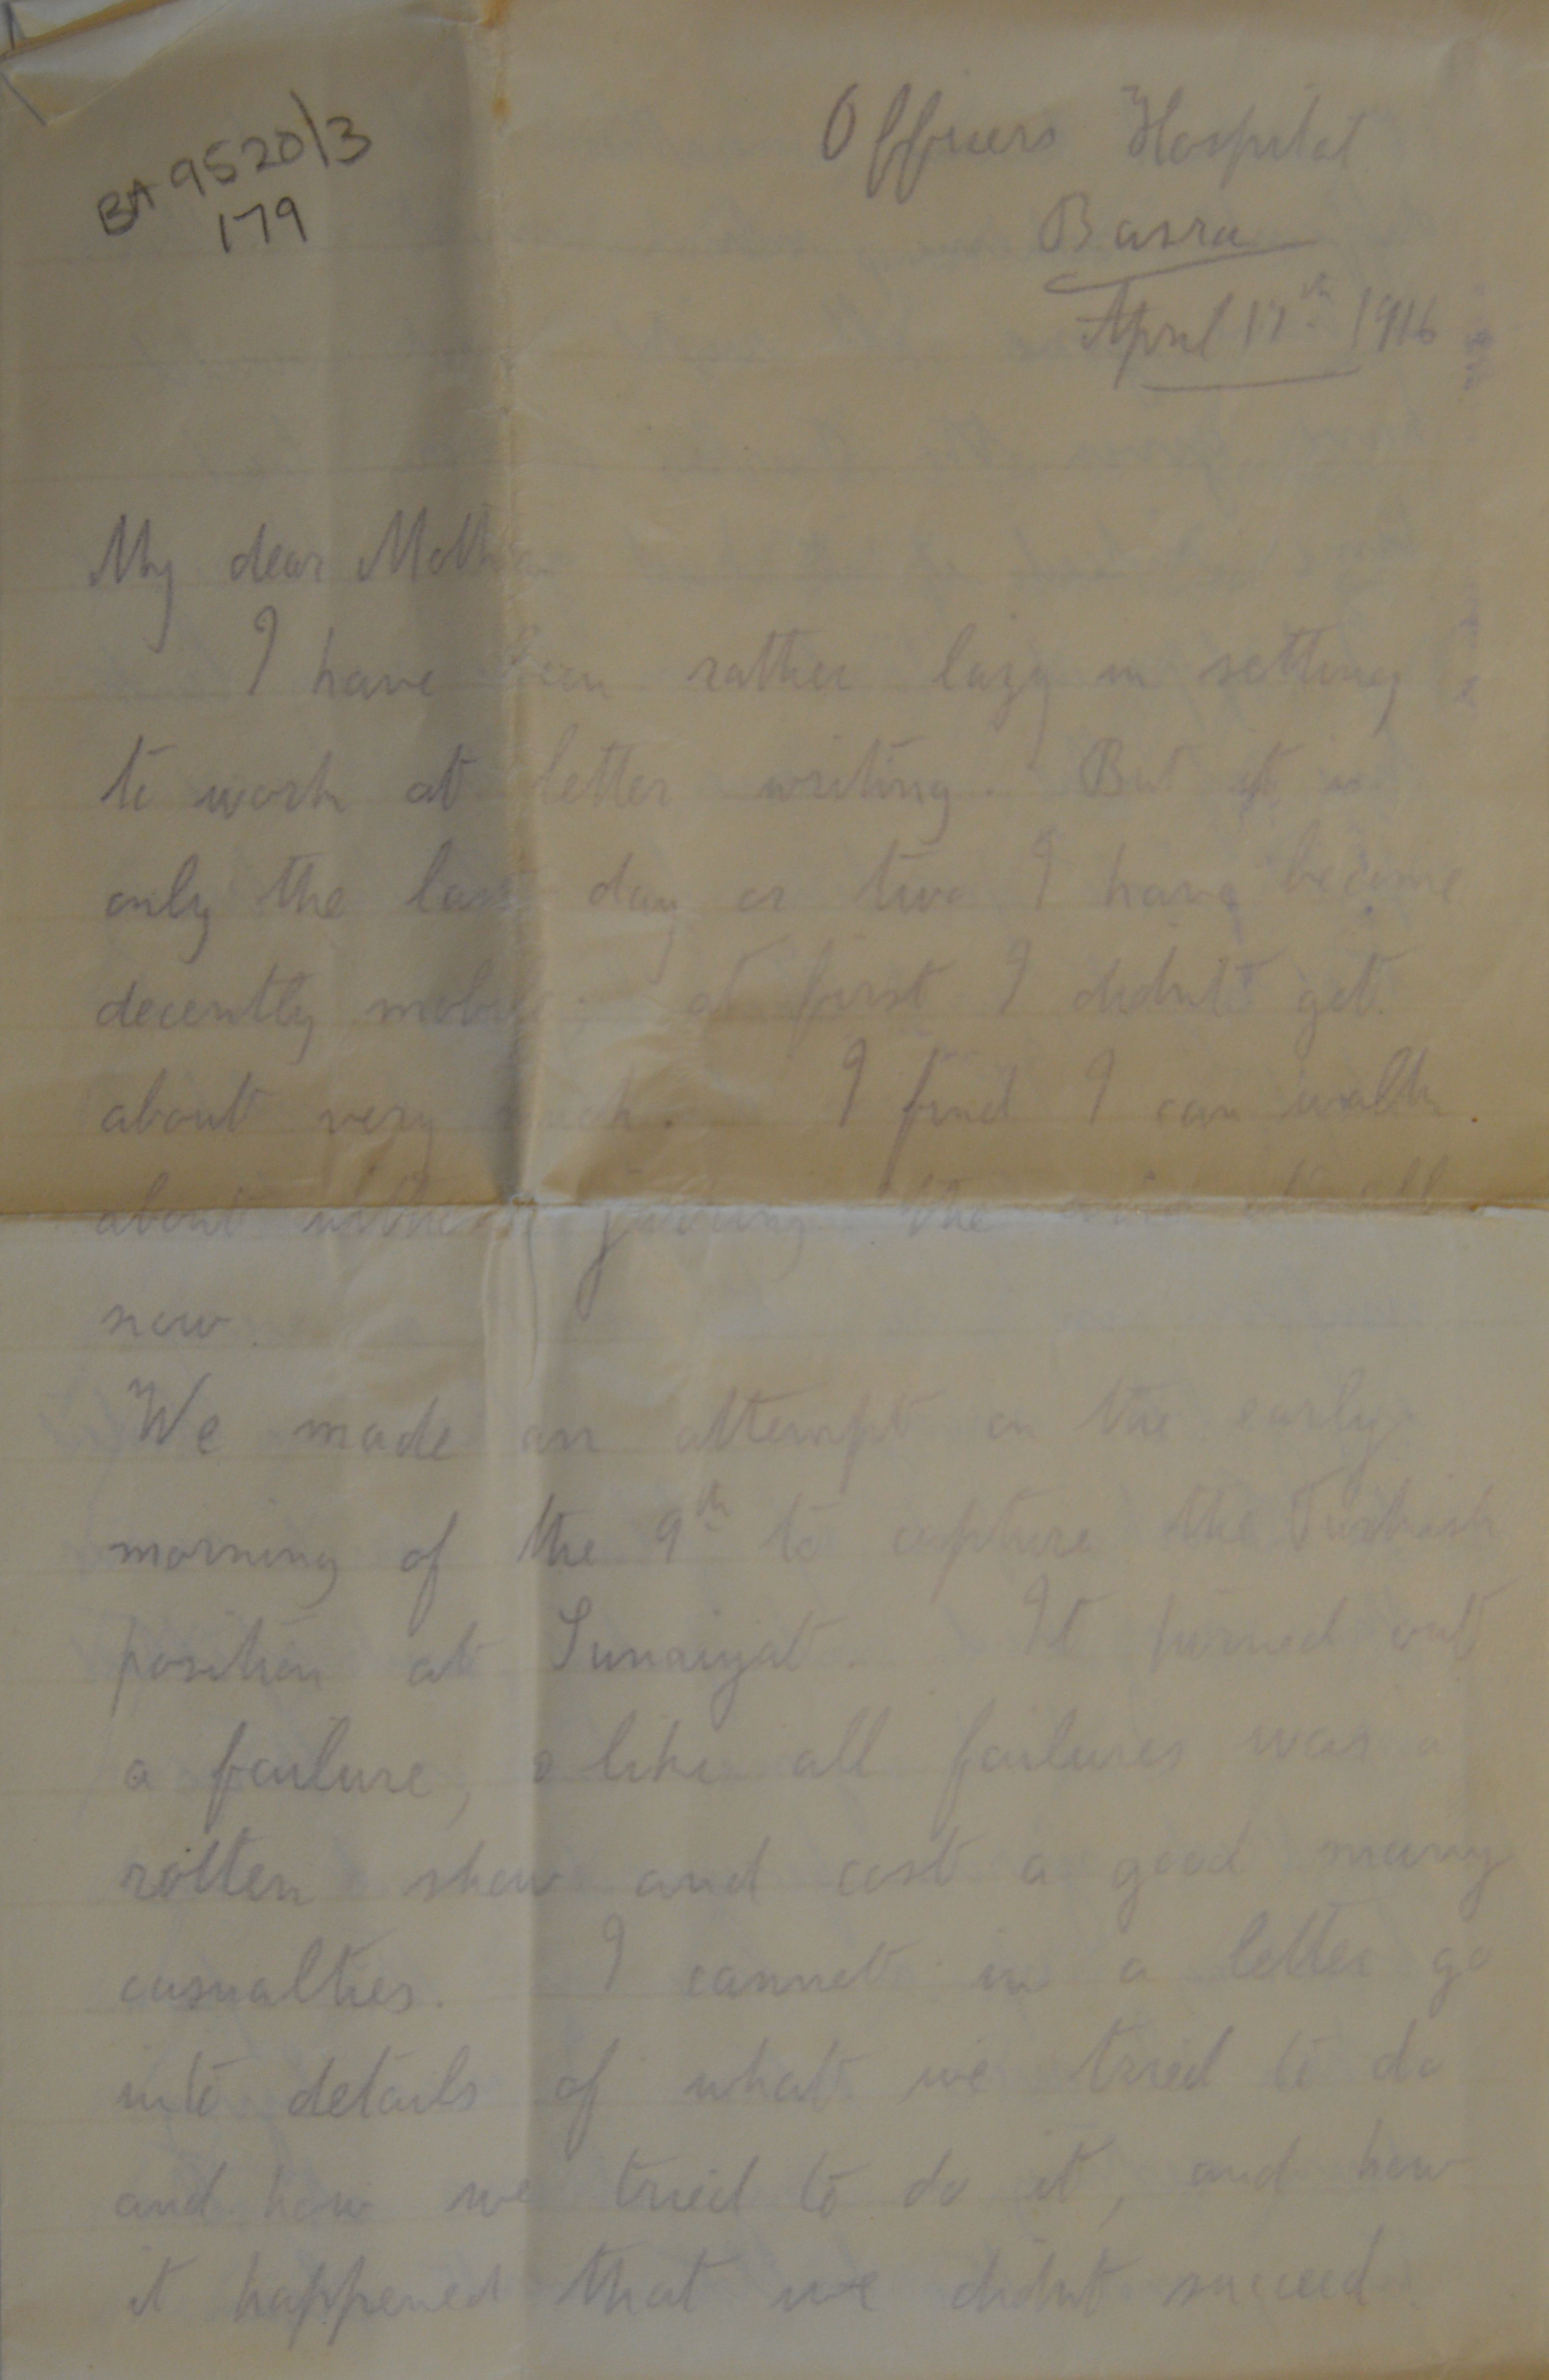 BA 9520/3
179
Officers Hospital
Basra
April 17th 1916
My dear Mother
I have been rather lazy in setting
to work at letter writing. But it is
only the last day or two I have become
decently mobile: at first I didn't get
about very much. I find I can walk
about without jarring the
now.
We made an attempt on the early
morning of the 9th to capture the Turkish
position at Sunaiyat. It turned out
a failure, & like all failures was a
rotten show and cost a good many
casualties. I cannot in a letter go
into details of what we tried to do
and how we tried to do it, and how
it happened that we didnt succeed.